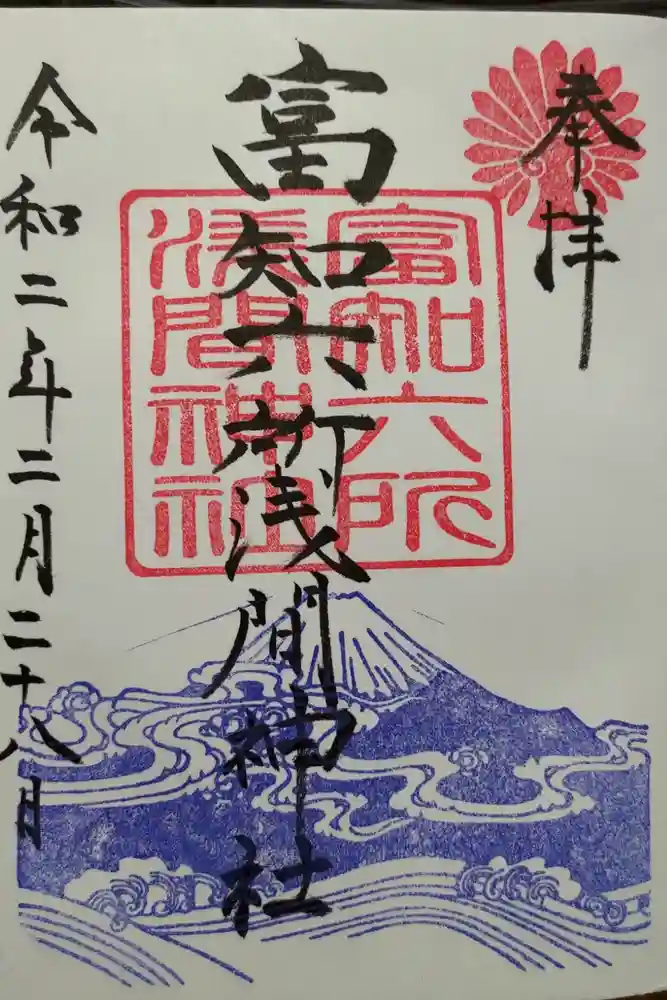 奉拝
富知六所浅間神社
富知六所
浅間神社
令和二年二月二十八日